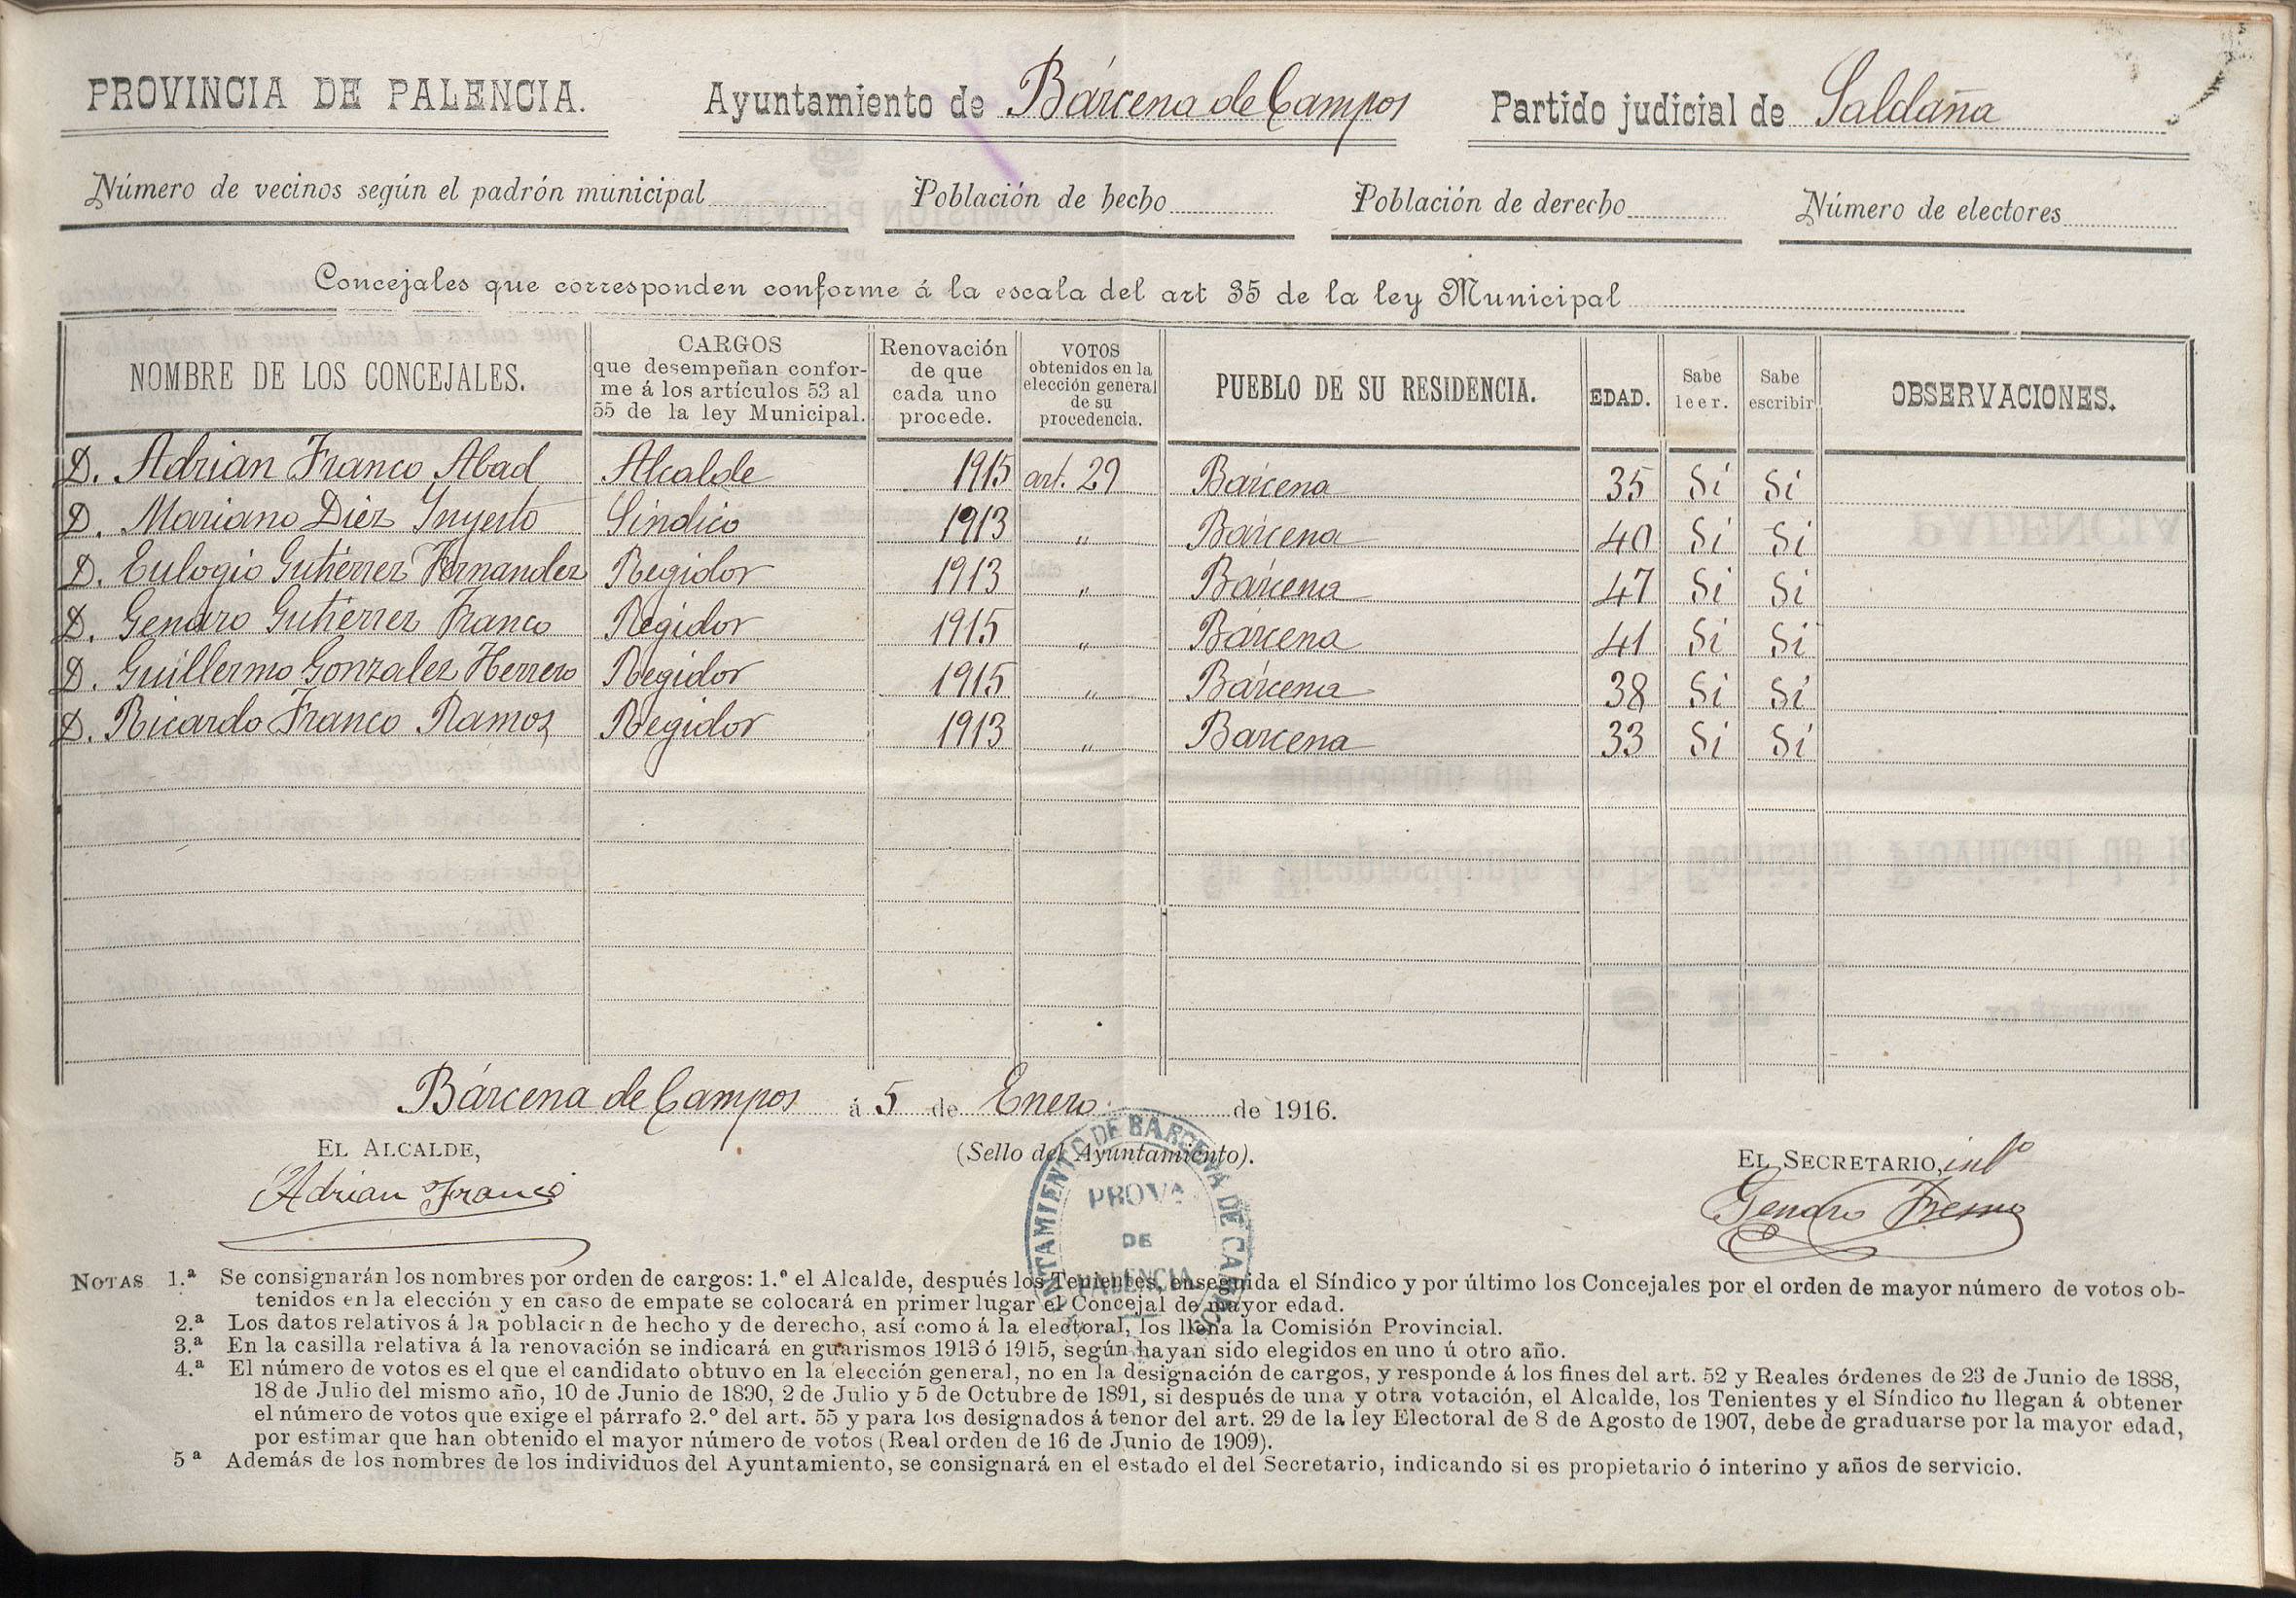 PROVINCIA DE PALENCIA. Ayuntamiento de Bárcena de Campos Partido judicial de Saldaña
Número de vecinos según el padrón municipal Población de hecho Población de derecho Número de electores
Concejales que corresponden conforme á la escala del art 35 de la ley Municipal
NOMBRE DE LOS CONCEJALES. CARGOS que desempeñan conforme á los artículos 53 al 55 de la ley Municipal. Renovación de que cada uno procede. VOTOS obtenidos en la elección general de su procedencia. PUEBLO DE SU RESIDENCIA. EDAD. Sabe leer. Sabe escribir OBSERVACIONES.
D. Adrian Franco Abad Alcalde 1915 art. 29 Bárcena 35 Si Si
D. Mariano Diez Inyesto Sindico 1913 „ Bárcena 40 Si Si
D. Eulogio Gutiérrez Hernandez Regidor 1913 „ Bárcena 47 Si Si
D. Genaro Gutierrez Franco Regidor 1915 „ Bárcena 41 Si Si
D. Guillermo Gonzalez Herrero Regidor 1915 „ Bárcena 38 Si Si
D. Ricardo Franco Ramos Regidor 1913 „ Barcena 33 Si Si
Bárcena de Campos á 5 de Enero de 1916.
EL ALCALDE, (Sello del Ayuntamiento). EL SECRETARIO, intº
Adrian Franco
AYUNTAMIENTO DE BARCENA DE CAMPOS
PROVA
DE
PALENCIA
NOTAS 1.ª Se consignarán los nombres por orden de cargos: 1.º el Alcalde, después los Tenientes, enseguida el Síndico y por último los Concejales por el orden de mayor número de votos ob-
tenidos en la elección y en caso de empate se colocará en primer lugar el Concejal de mayor edad.
2.ª Los datos relativos á la población de hecho y de derecho, así como á la electoral, los llena la Comisión Provincial.
3.ª En la casilla relativa á la renovación se indicará en guarismos 1913 ó 1915, según hayan sido elegidos en uno ú otro año.
4.ª El número de votos es el que el candidato obtuvo en la elección general, no en la designación de cargos, y responde á los fines del art. 52 y Reales órdenes de 23 de Junio de 1888,
18 de Julio del mismo año, 10 de Junio de 1890, 2 de Julio y 5 de Octubre de 1891, si después de una y otra votación, el Alcalde, los Tenientes y el Síndico no llegan á obtener
el número de votos que exige el párrafo 2.º del art. 55 y para los designados á tenor del art. 29 de la ley Electoral de 8 de Agosto de 1907, debe de graduarse por la mayor edad,
por estimar que han obtenido el mayor número de votos (Real orden de 16 de Junio de 1909).
5ª Además de los nombres de los individuos del Ayuntamiento, se consignará en el estado el del Secretario, indicando si es propietario ó interino y años de servicio.